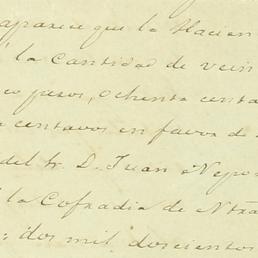 aparece que la Hacien
la cantidad de vein
co pesos, ochenta centa
centavos en favor de
del Sr. D. Juan Nepo
la Cofradia de Ntra
dos mil doscientos